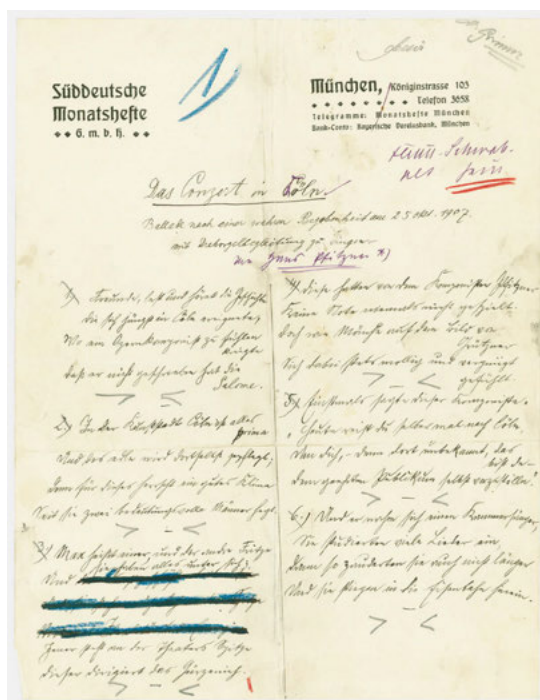 1)
Süddeutsche
Monatshefte
G. m. b. H.
München, Königinstrasse 103
Telefon 3658
Telegramme: Monatshefte München
Bank-Conto: Bayerische Vereinsbank, München
Das Conzert in Cöln.
Ballade nach einer wahren Begebenheit am 25 Okt. 1907.
mit zu singen
von Hans Pfitzner *)
1) Freunde, und höret die Geschichte
die sich jüngst in Cöln ereignete,
Wo ein Opernkomponist zu fühlen
kriegte
daß er nicht geschrieben hat die
Salome.
2) In der Stadt Cöln ist alles
prima
Und das wird daselbst gepflegt,
Denn für dieses herrscht ein gutes Klima
Seit sie zwei bedeutungsvolle Männer hegt.
3) Max heißt einer, und der andre Fritze
Sie haben alles unter sich:
Und
Jener steht an der Theaters Spitze
Dieser dirigiert das Gürzenich.
4) Diese hatten von dem Komponisten Pfitzner
Keine Note niemals nicht gespielt
Doch wie Mönche auf dem Bild von
Grützner
Sich dabei stets mollig und vergnügt
gefühlt.
5) Einstmals sagte dieser Komponiste:
"Heuer reist du selber mal nach Cöln,
Um dich, – denn dort unbekannt, das
bist du –
dem geehrten Publikum selbst vorzustelln."
6.) Und er nahm sich einen Kammersänger,
Sie studierten viele Lieder ein,
Dann so zauderten sie auch nicht länger
Und sie stiegen in die Eisenbahn herein.